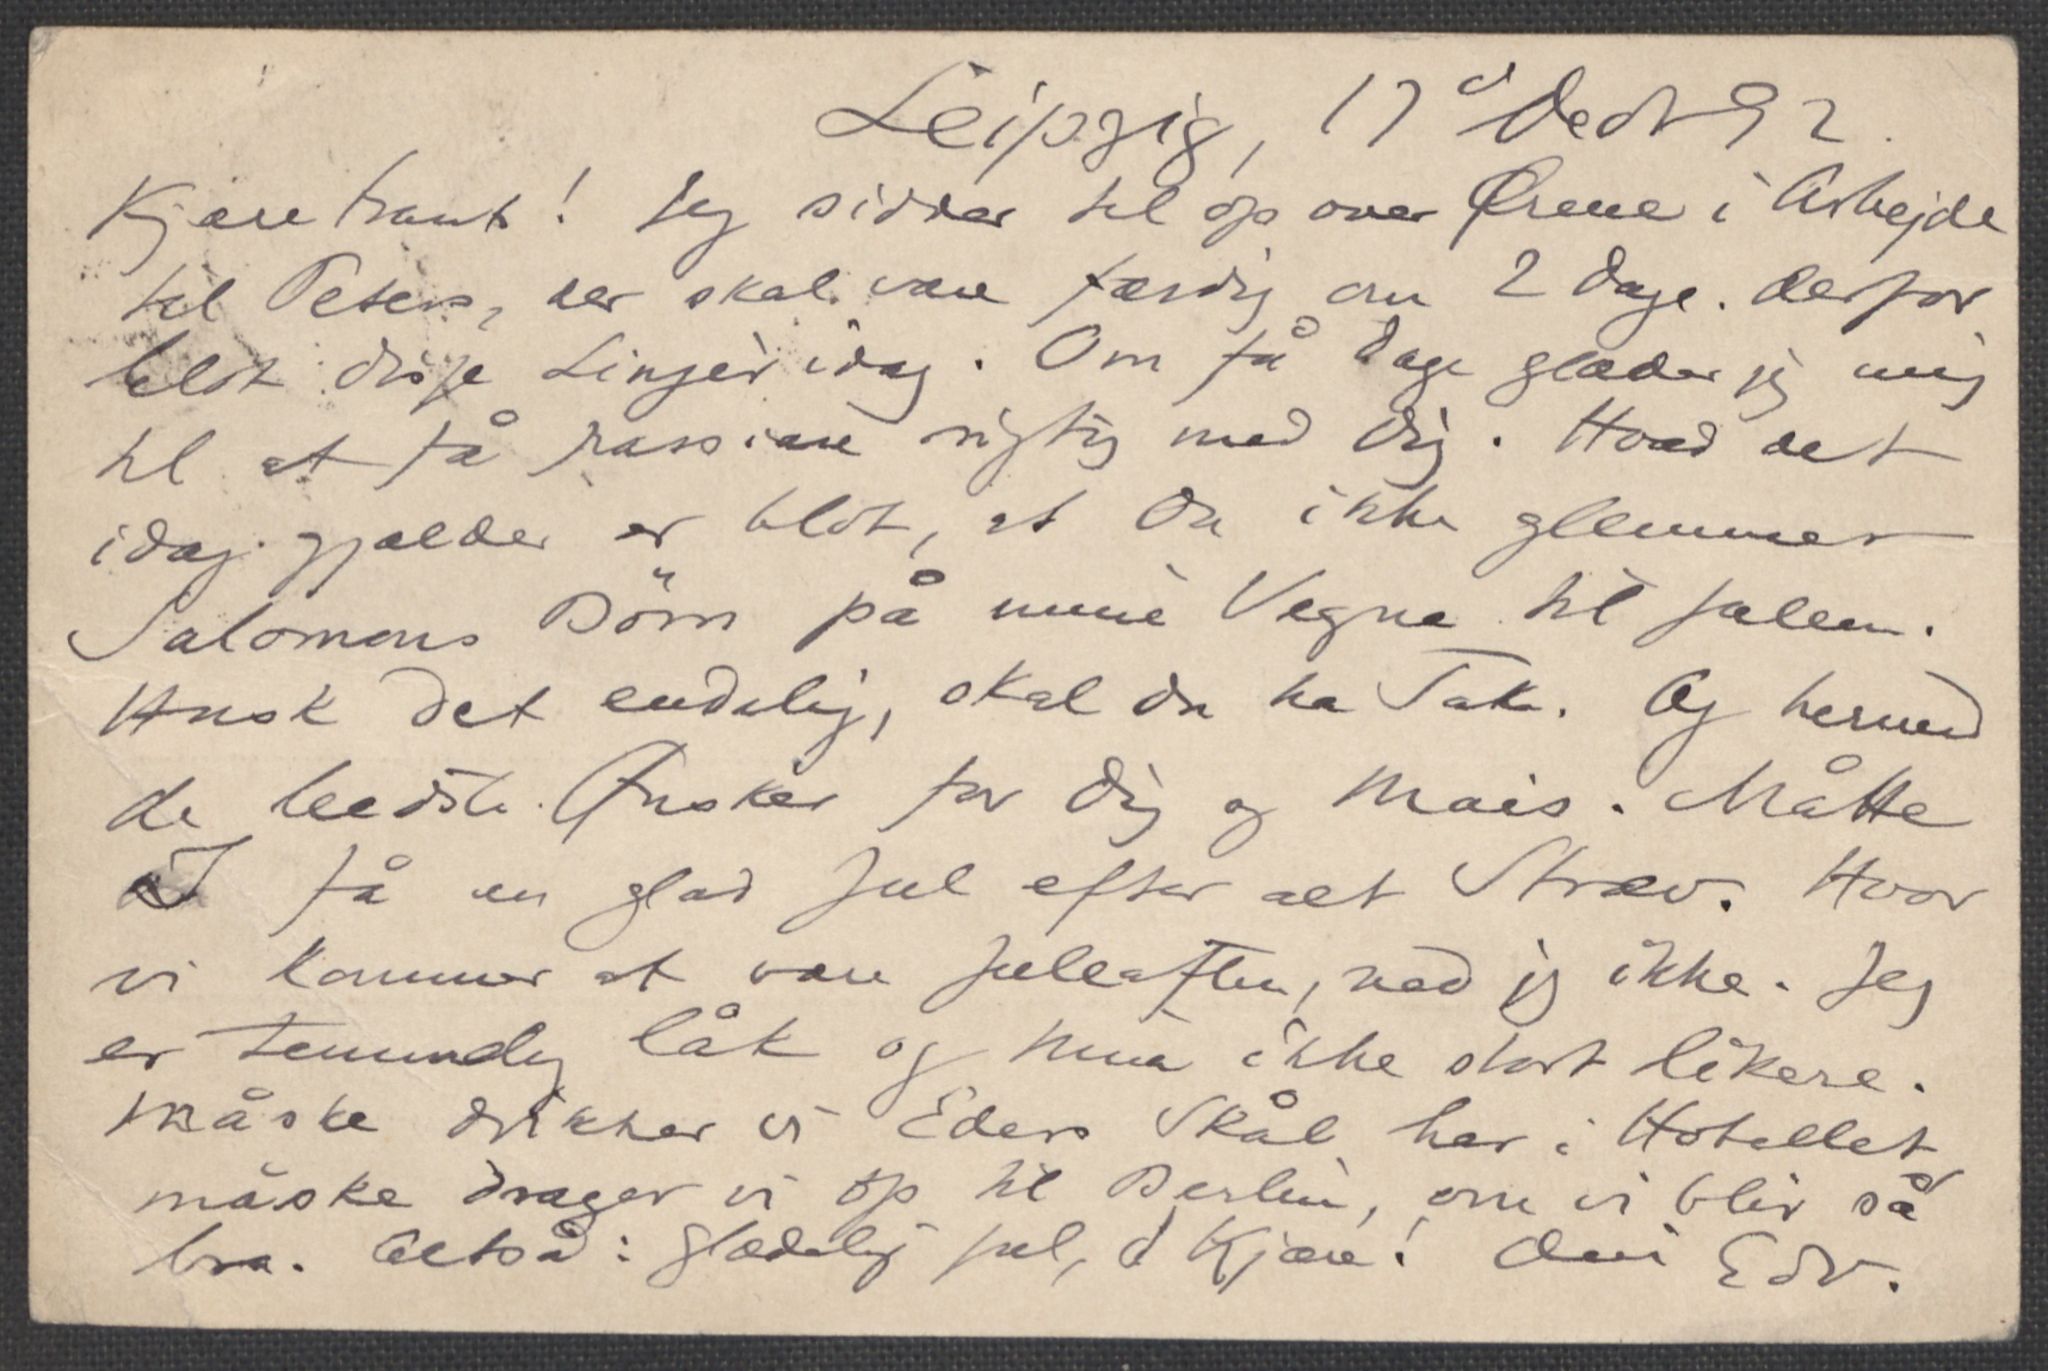 Leipzig, 17 d Decbr 92.
Kjære Frants! Jeg sidder til op over Ørene i Arbejde
til Peters, der skal være færdig om 2 Dage. Derfor
blot disse Linjer idag. Om få Dage glæder jeg mig
til at få passiare rigtig med Dig. Hvad det
idag gjælder er blot, at Du ikke glemmer
Salomons Börn på mine Vegne til Julen.
Husk det endelig, skal Du ha Tak. Og hermed
de bedste Ønsker for Dig og Mais. Måtte
I få en glad Jul efter alt Stræv. Hvor
vi kommer at være Juleaften, ved jeg ikke. Jeg
er temmelig låk og Nina ikke stort likere.
Måske drikker vi Eders Skål her i Hotellet
måske drager vi op til Berlin, om vi blir så
bra. Altså: Glædelig Jul, d Kjære! Din Edv.